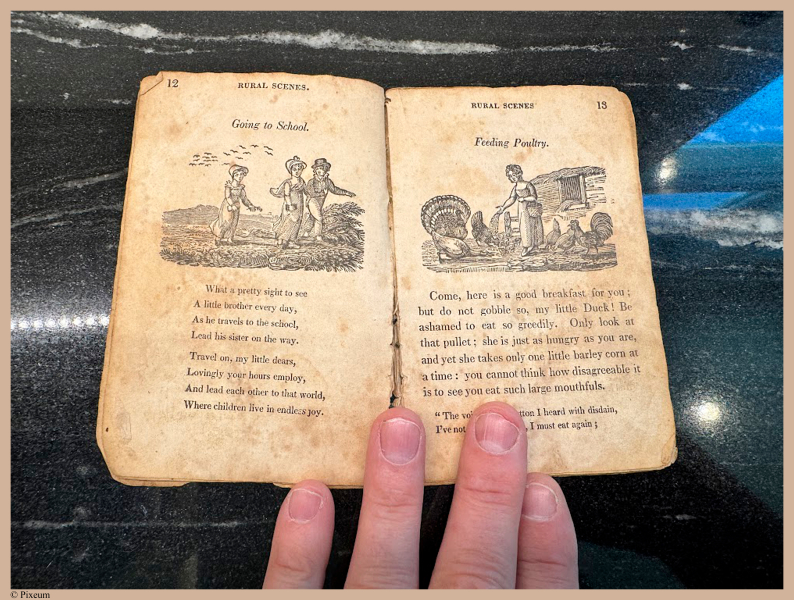 12
RURAL SCENES.
Going to School.
What a pretty sight to see
A little brother every day,
As he travels to the school,
Lead his sister on the way.
Travel on, my little dears,
Lovingly your hours employ,
And lead each other to that world,
Where children live in endless joy.
RURAL SCENES
13
Feeding Poultry.
Come, here is a good breakfast for you;
but do not gobble so, my little Duck! Be
ashamed to eat so greedily. Only look at
that pullet; she is just as hungry as you are,
and yet she takes only one little barley corn at
a time: you cannot think how disagreeable it
is to see you eat such large mouthfuls.
"The tton I heard with disdain,
I've , I must eat again;
© Pixeum